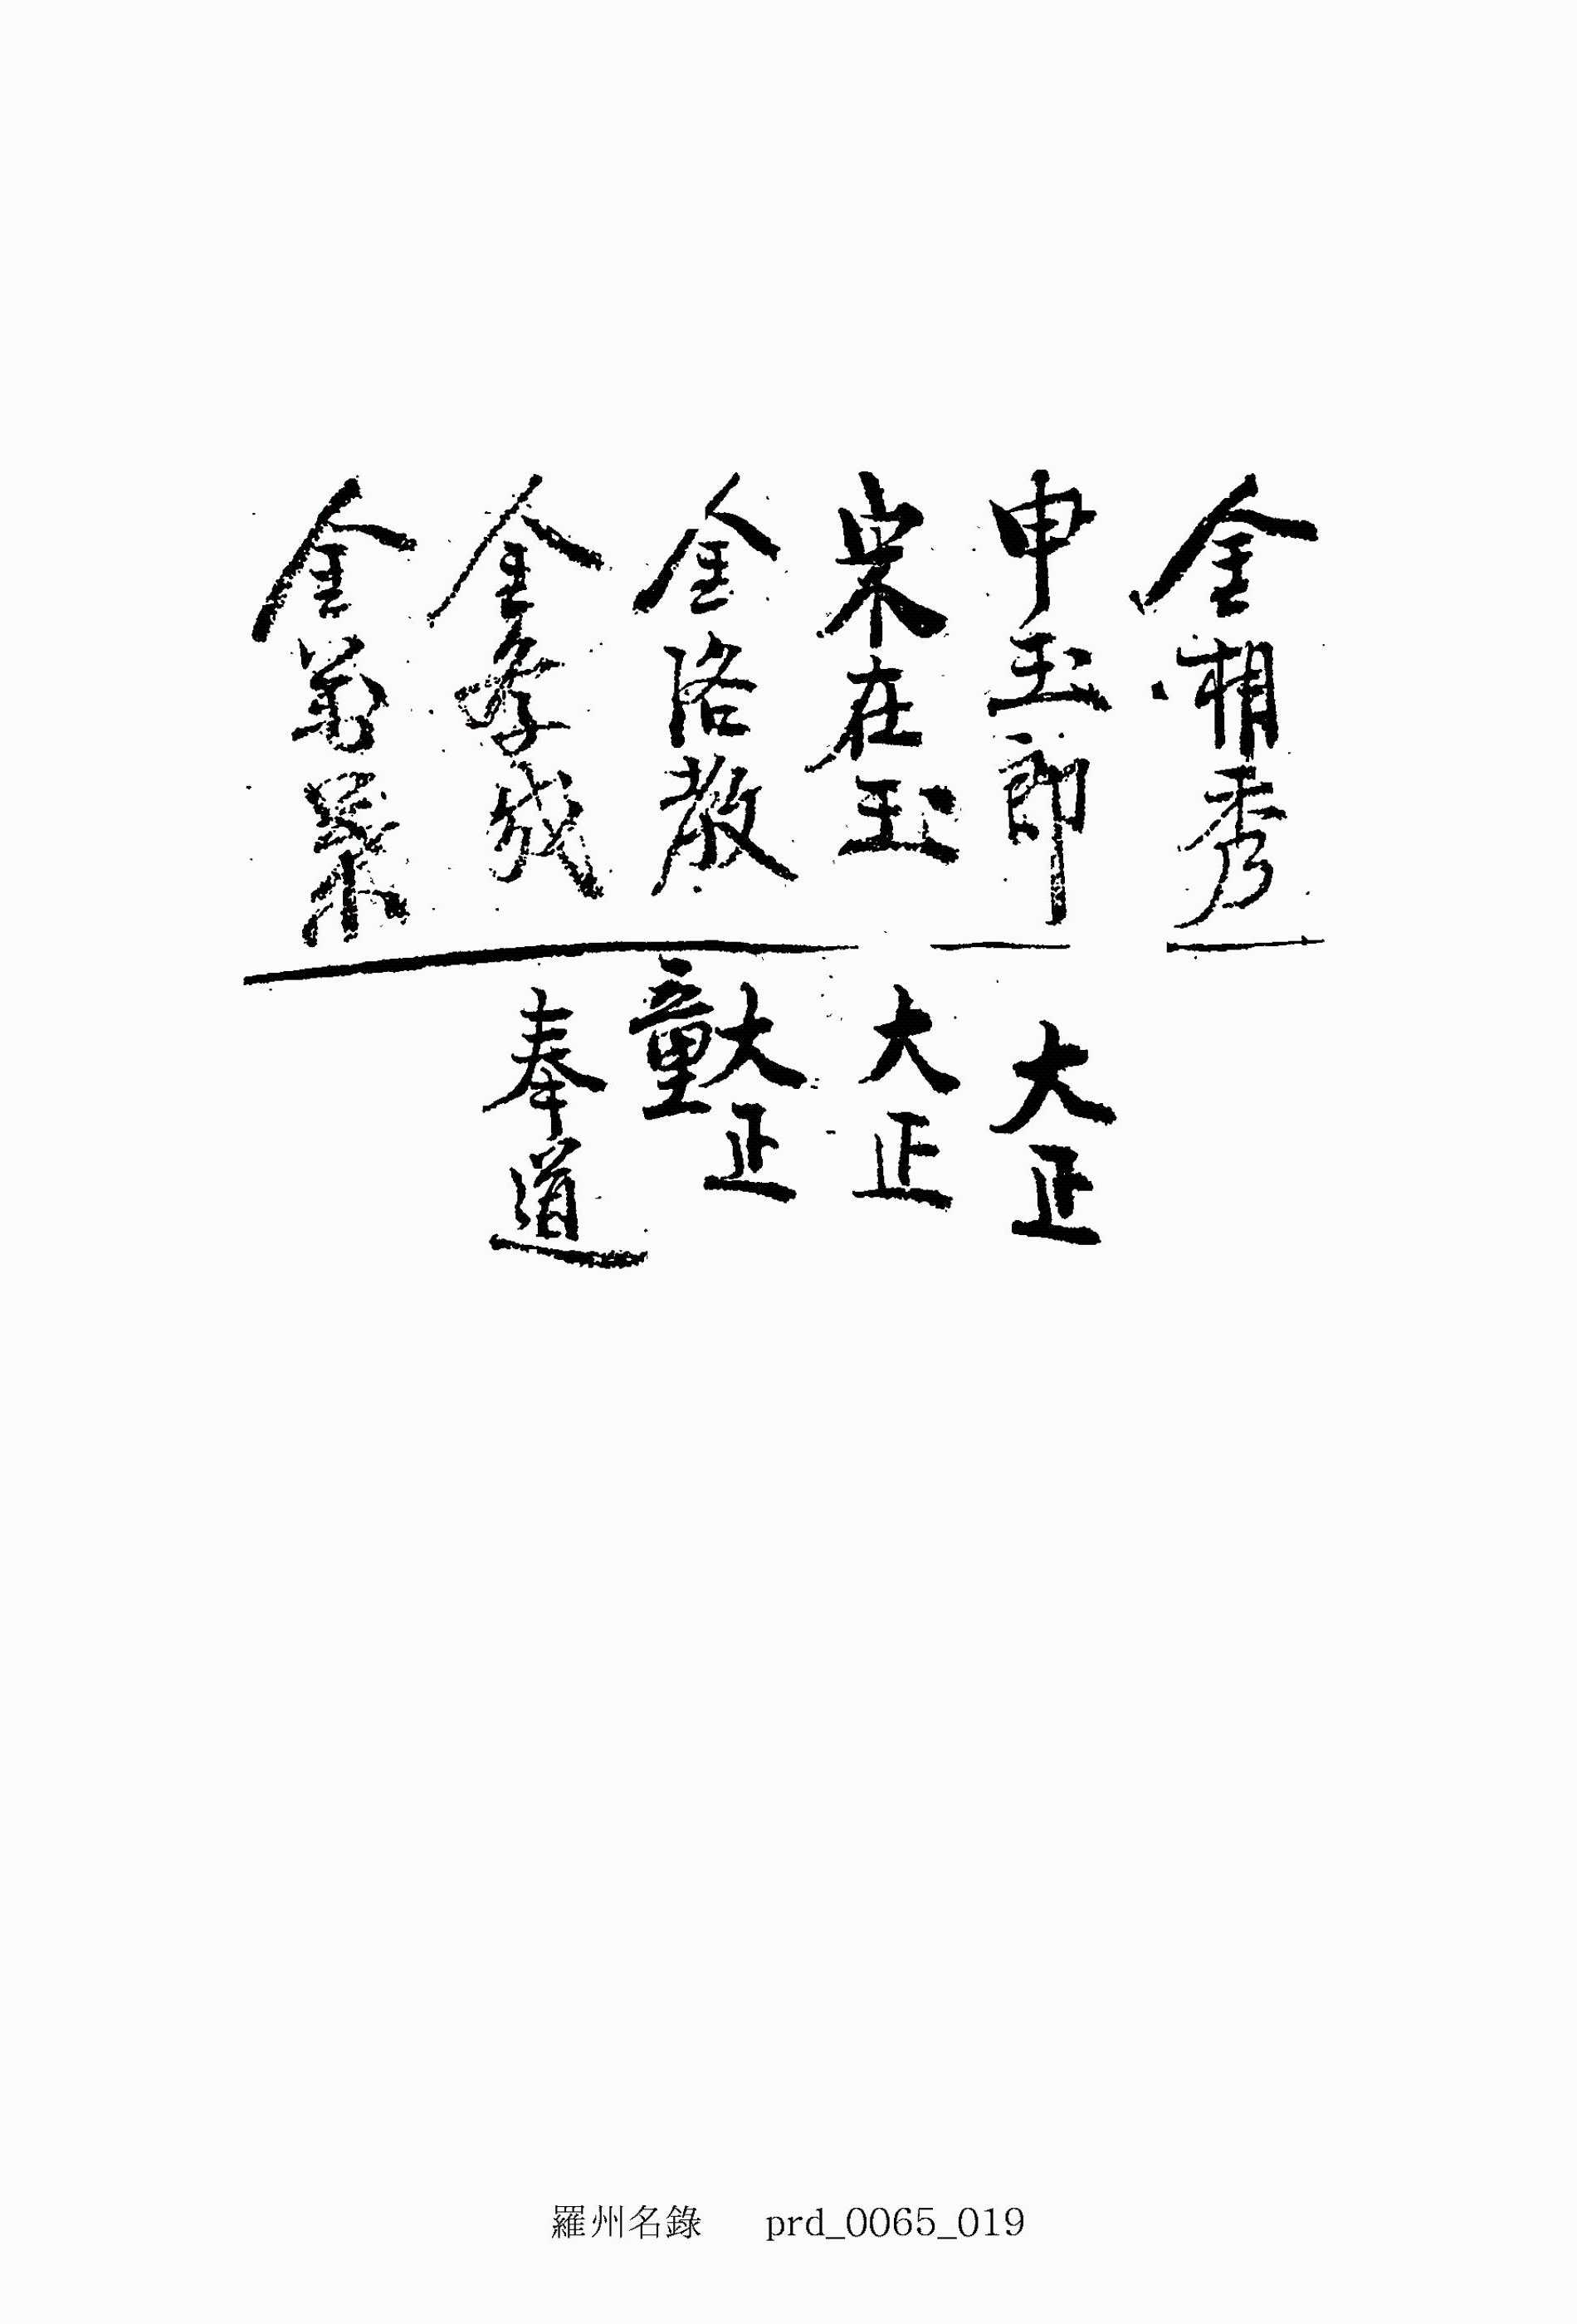 金相秀
申玉郎 大正
宋在玉 大正
金洛敎 大正 童
金孝成 奉道
金萬業
羅州名錄 prd_0065_019